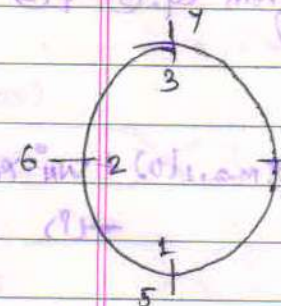 4
3
6 2
1
5